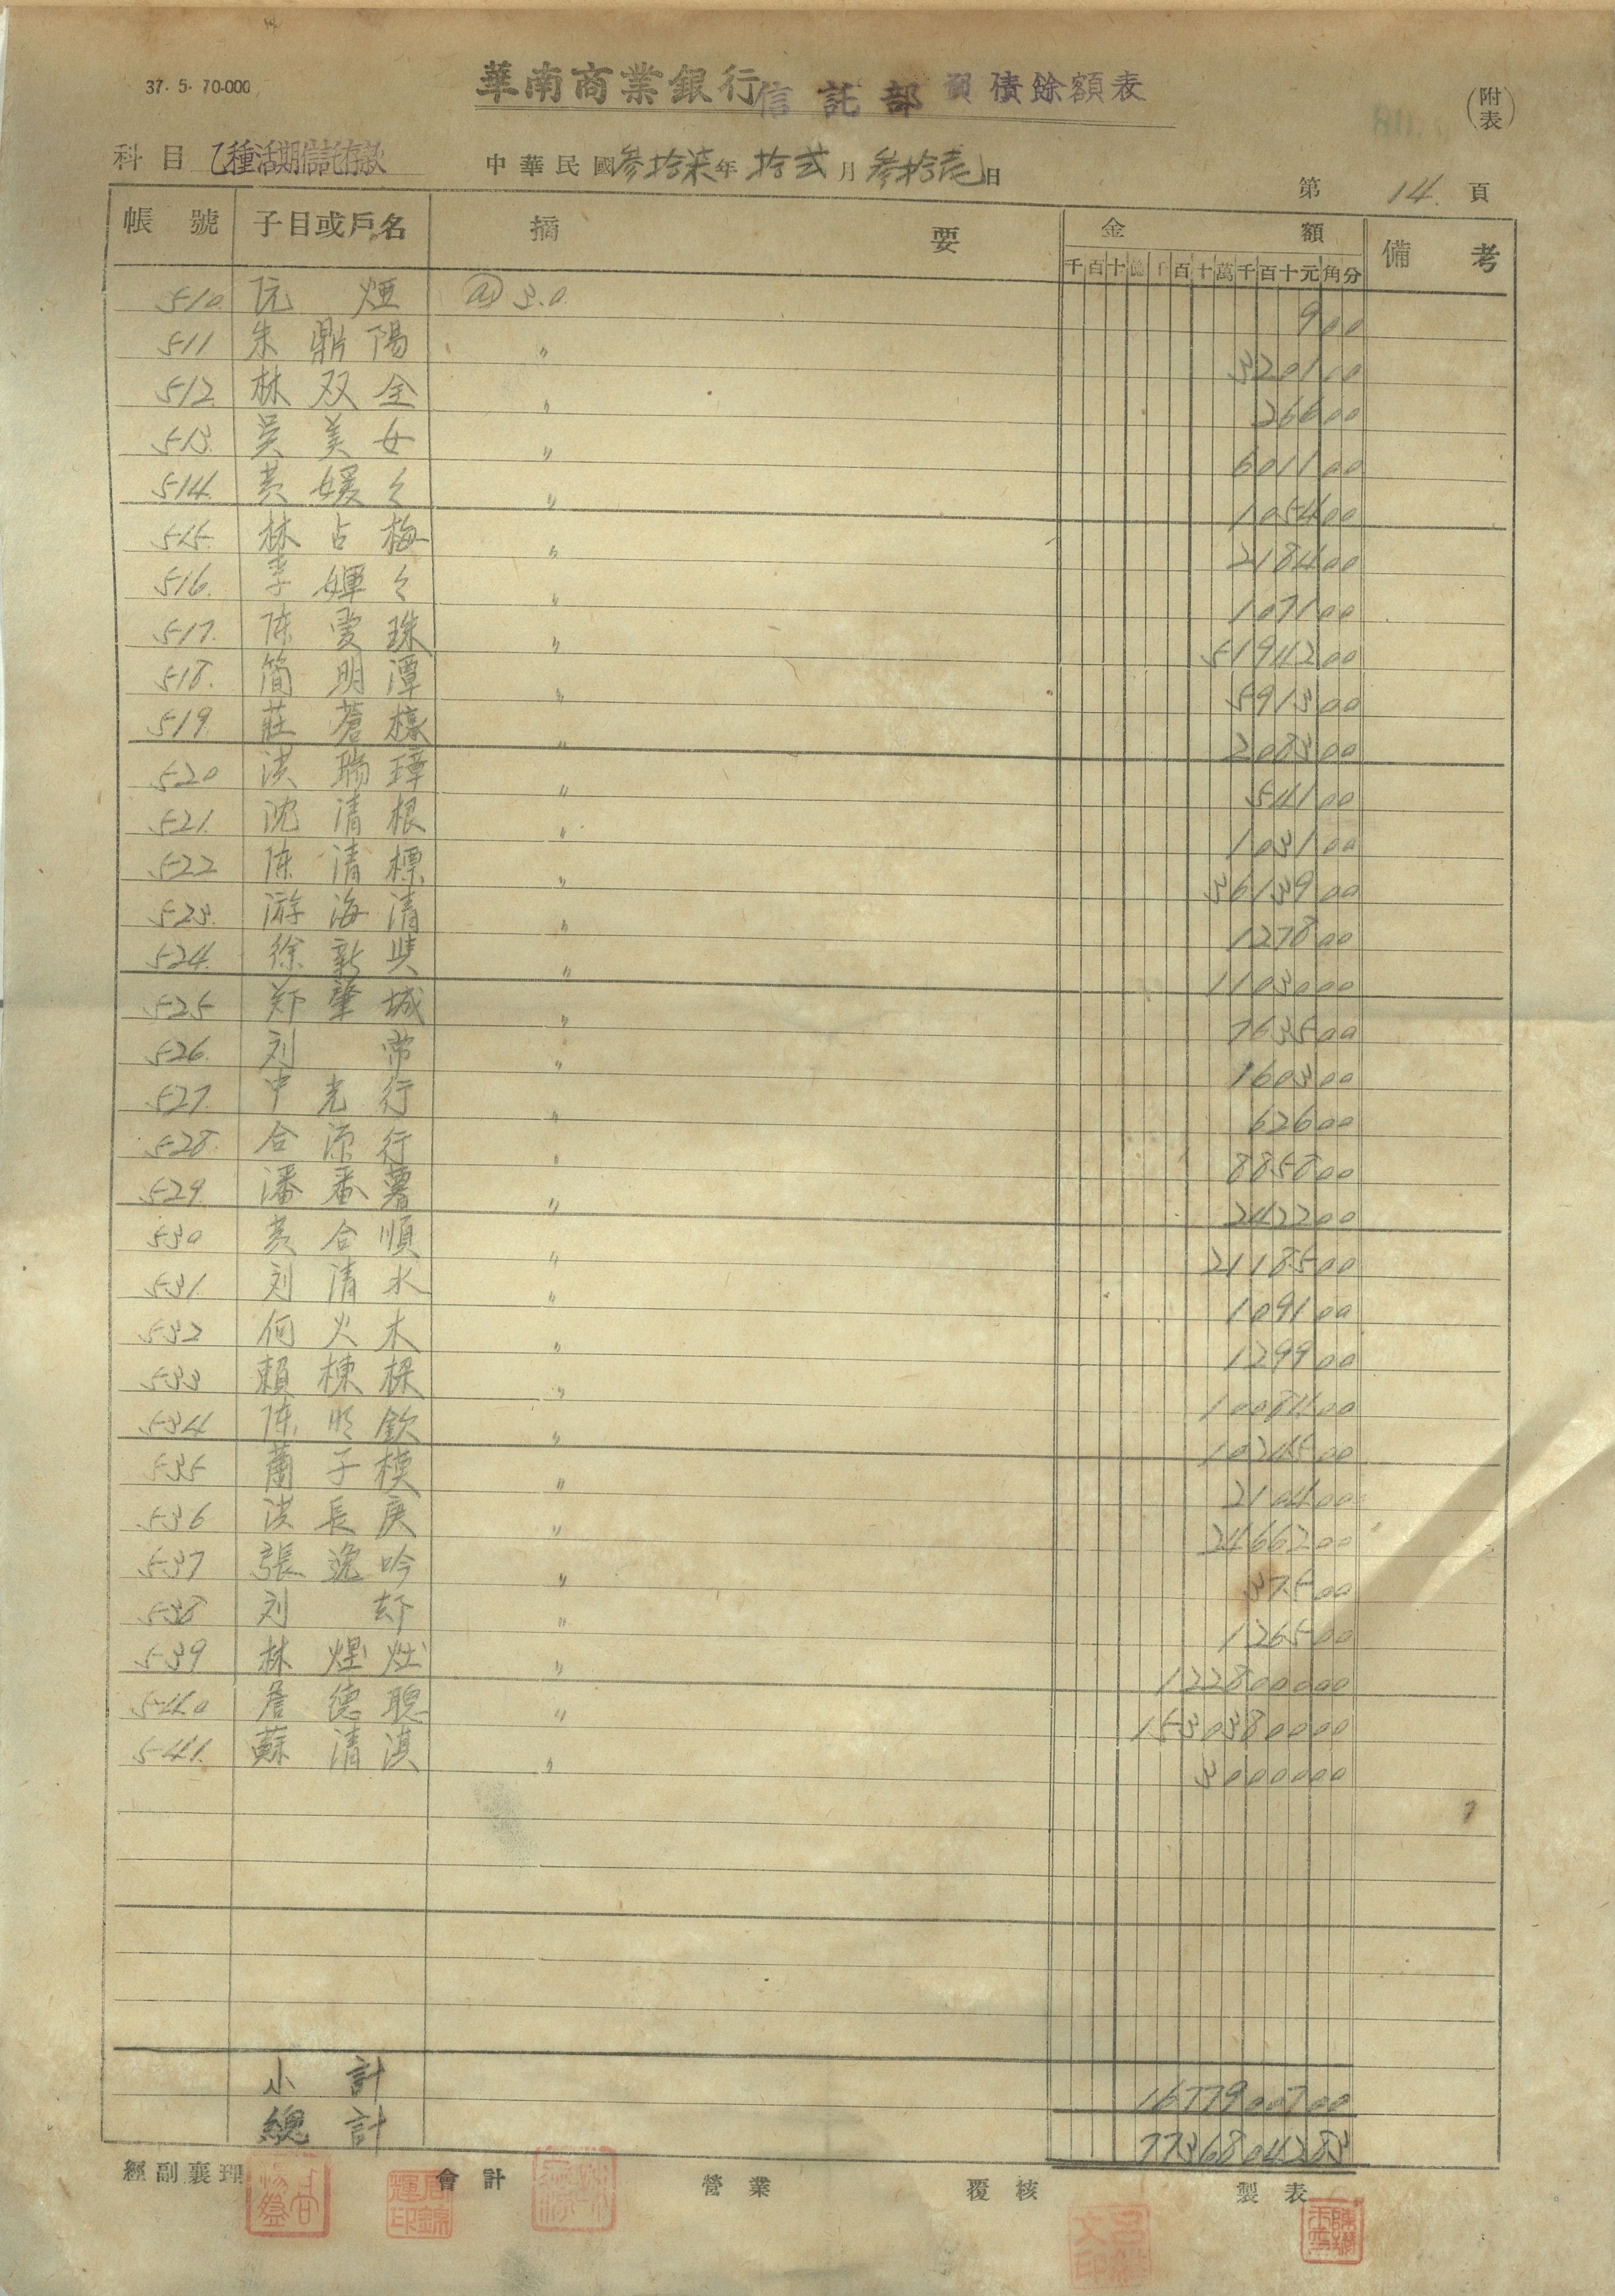 37. 5. 70.000
華南商業銀行信託部 負債餘額表
(附表)
科目 乙種活期信託存款 中華民國參拾柒年拾弍月參拾壱日
第 14. 頁
帳號 子目或戶名 摘要 金額 備考
千百十億千百十萬千百十元角分
510. 阮煙 @ 3.0. 9 00
511 朱鼎陽 〃 3201 00
512. 林双全 〃 266 00
513. 吳美女 〃 6011 00
514. 黃媛々 〃 1054 00
515. 林占梅 〃 2184 00
516. 李媈々 〃 1071 00
517. 陈愛珠 〃 51942 00
518. 簡明潭 〃 5913 00
519. 莊蒼檺 〃 2083 00
520 洪瑞璋 〃 541 00
521. 沈清根 〃 1031 00
522 陈清標 〃 36139 00
523. 游海清 〃 1278 00
524. 徐新興 〃 11030 00
525 郑肇城 〃 7635 00
526. 刘常 〃 1603 00
527. 中光行 〃 626 00
528. 合源行 〃 8858 00
529. 潘番薯 〃 2422 00
530 黃合順 〃 21185 00
531. 刘清水 〃 1091 00
532 何火木 〃 1299 00
533 賴棟樑 〃 10084 00
534 陈欽 〃 10245 00
535 蕭子模 〃 2104 00
536 洪長庚 〃 24662 00
537 張逸吟 〃 375 00
538 刘 〃 1265 00
539 林煋灶 〃 1228000 00
540 詹德聰 〃 15303800 00
541. 蘇清淇 〃 30000 00
小計 16779007 00
總計 77368042 83
經副襄理 會計 營業 覆核 製表